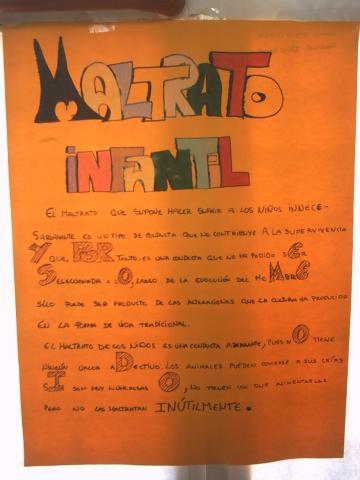 MALTRATO
INFANTIL
EL MALTRATO QUE SUPONE HACER SUFRIR A LOS NIÑOS INNECE-
SARIAMENTE ES UN TIPO DE CONDUCTA QUE NO CONTRIBUYE A LA SUPERVIVENCIA
Y QUE, POR TANTO, ES UNA CONDUCTA QUE NO HA PODIDO SER
SELECCIONADA A LO LARGO DE LA EVOLUCIÓN DEL HOMBRE
SÓLO PUEDE SER PRODUCTO DE LAS ALTERACIONES QUE LA CULTURA HA PRODUCIDO
EN LA FORMA DE VIDA TRADICIONAL.
EL MALTRATO DE LOS NIÑOS ES UNA CONDUCTA ABERRANTE, PUES NO TIENE
NINGÚN VALOR ADAPTIVO. LOS ANIMALES PUEDEN A SUS CRÍAS
SI SON MUY NUMEROSAS O, NO TIENEN CON QUE ALIMENTARLAS
PERO NO LAS MALTRATAN INÚTILMENTE.